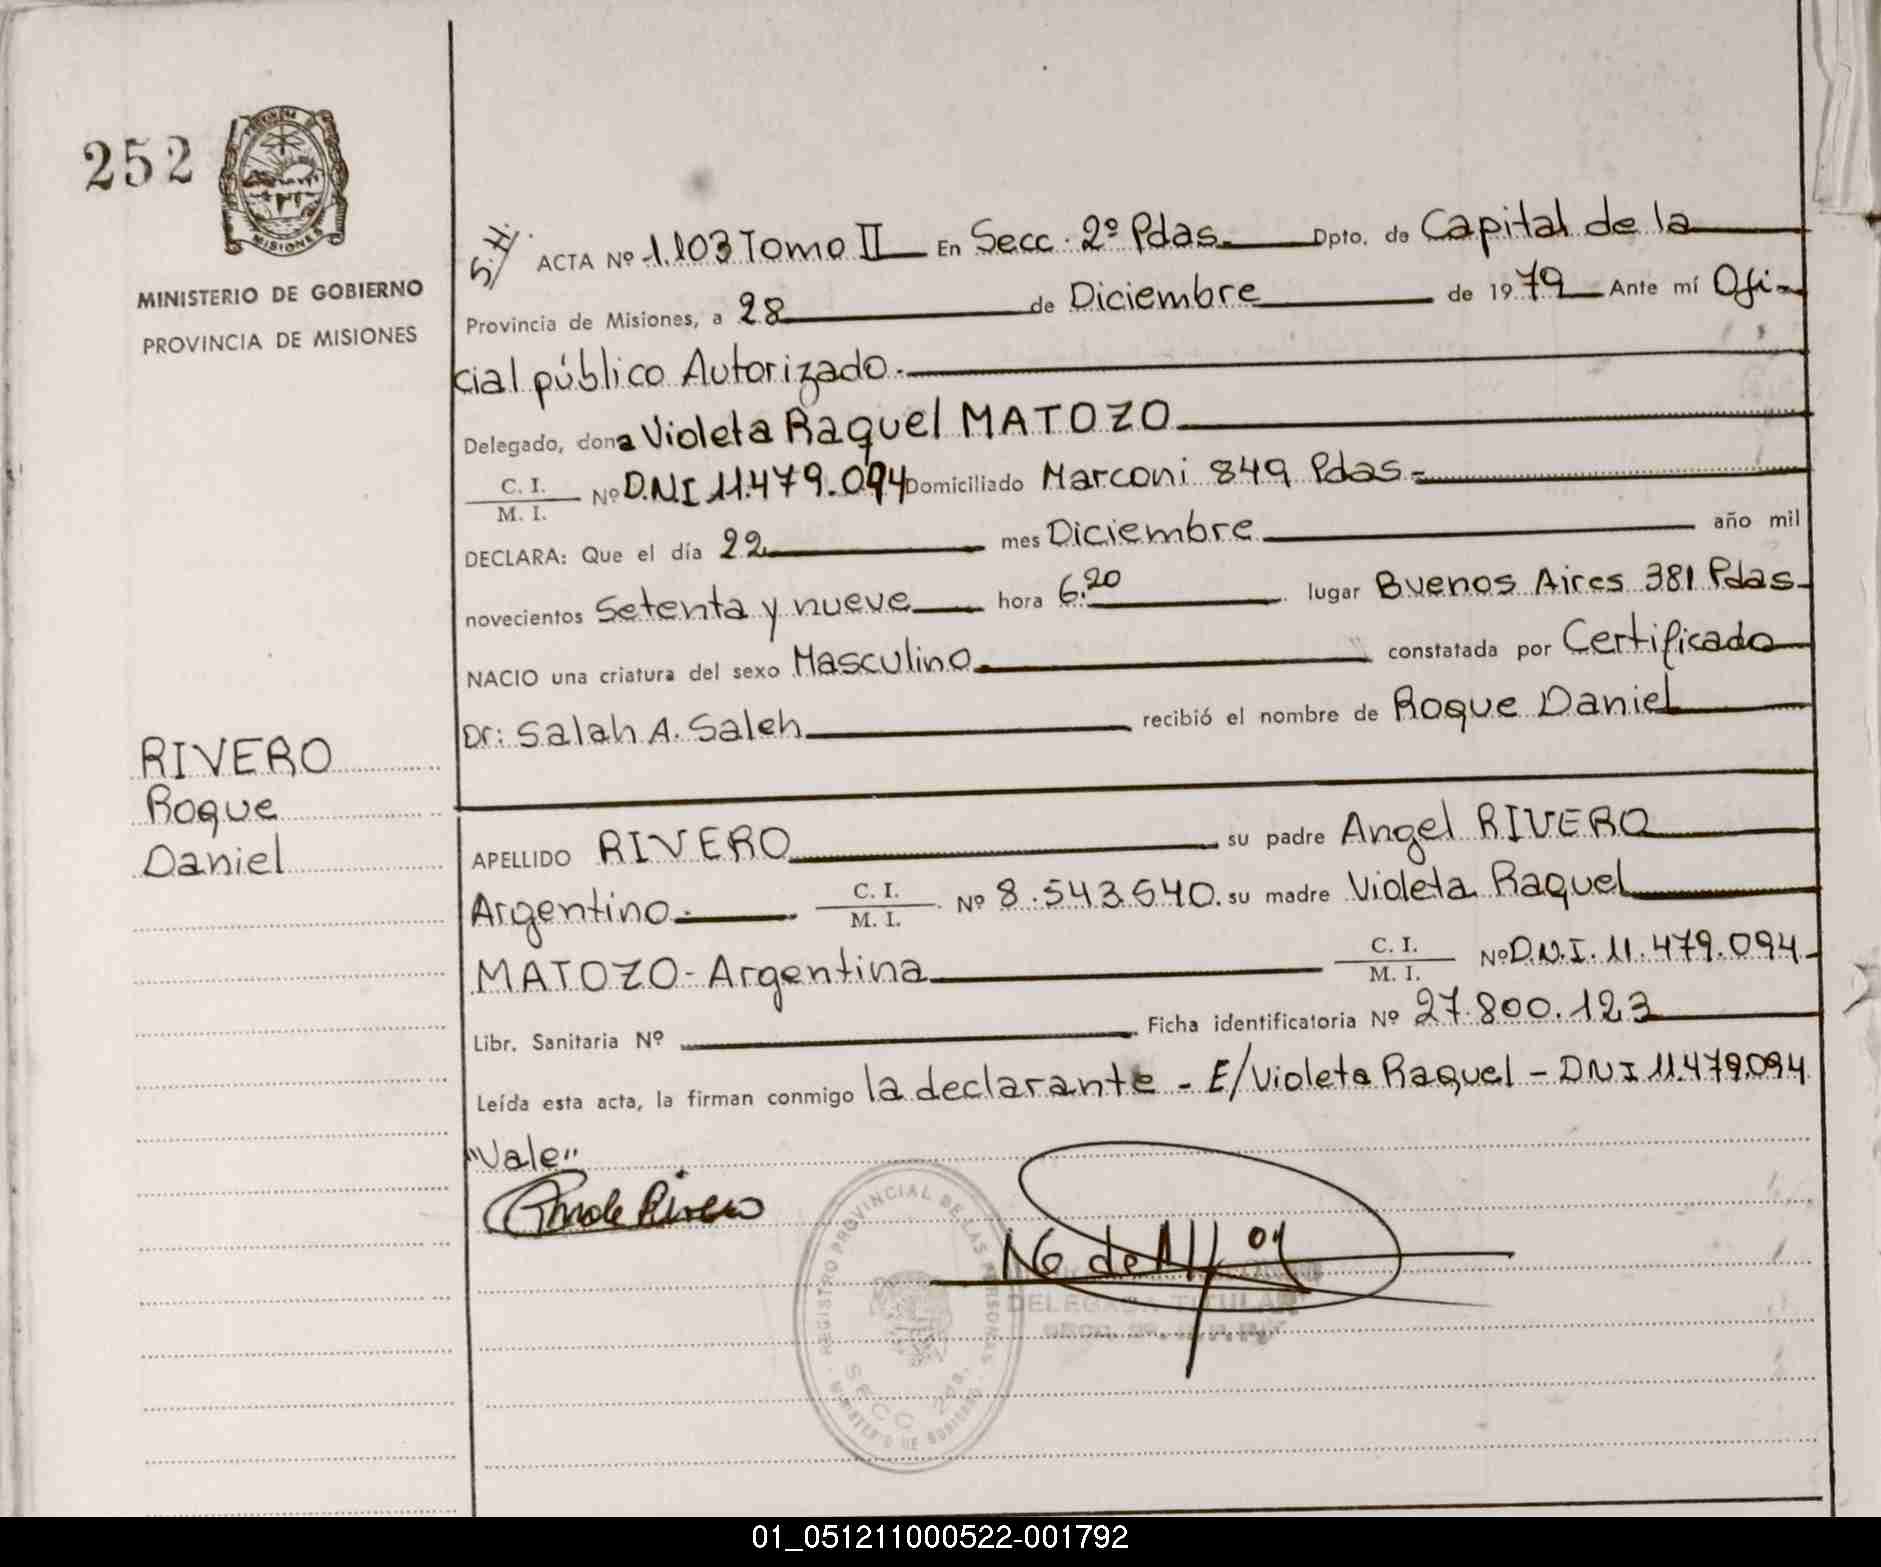 252
MISIONES
MINISTERIO DE GOBIERNO
PROVINCIA DE MISIONES
RIVERO
Roque
Daniel
ACTA Nº 1.103 Tomo II En Secc. 2º Pdas. Dpto. de Capital de la
Provincia de Misiones, a 28 de Diciembre de 1979 Ante mí Ofi-
cial público Autorizado.
Delegado, dona Violeta Raquel MATOZO
C. I. / M. I. Nº D.N.I 11.479.094 Domiciliado Marconi 849 Pdas.
DECLARA: Que el día 22 mes Diciembre año mil
novecientos Setenta y nueve hora 6.20 lugar Buenos Aires 381 Pdas
NACIO una criatura del sexo Masculino constatada por Certificado
Dr: Salah A. Saleh recibió el nombre de Roque Daniel
APELLIDO RIVERO su padre Angel RIVERO
Argentino. C. I. / M. I. Nº 8.543.640. su madre Violeta Raquel
MATOZO - Argentina C. I. / M. I. Nº D.N.I. 11.479.094.
Libr. Sanitaria Nº Ficha identificatoria Nº 27.800.123
Leída esta acta, la firman conmigo la declarante - E/Violeta Raquel - DNI 11.479.094
"Vale"
REGISTRO PROVINCIAL DE LAS PERSONAS
MINISTERIO DE GOBIERNO
DELEGADA TITULAR
01_051211000522-001792